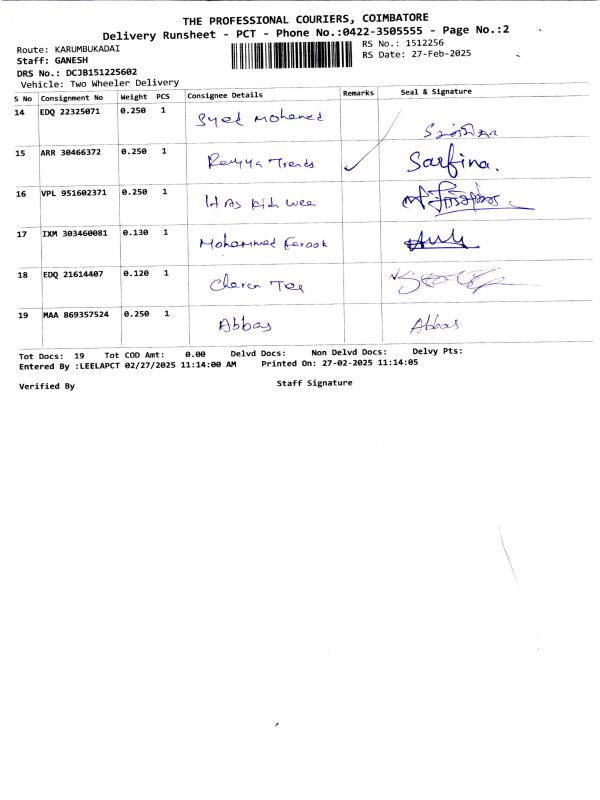 THE PROFESSIONAL COURIERS, COIMBATORE
Delivery Runsheet - PCT - Phone No.:0422-3505555 - Page No.:2
Route: KARUMBUKADAI RS No.: 1512256
Staff: GANESH RS Date: 27-Feb-2025
DRS No.: DCJB151225602
Vehicle: Two Wheeler Delivery
S No Consignment No Weight PCS Consignee Details Remarks Seal & Signature
14 EDQ 22325071 0.250 1 Syed Mohamed
15 ARR 30466372 0.250 1 Trends Sarfina.
16 VPL 951602371 0.250 1
17 IXM 303460081 0.130 1 Mohammed Farook
18 EDQ 21614407 0.120 1
19 MAA 869357524 0.250 1 Abbas Abbas
Tot Docs: 19 Tot COD Amt: 0.00 Delvd Docs: Non Delvd Docs: Delvy Pts:
Entered By :LEELAPCT 02/27/2025 11:14:00 AM Printed On: 27-02-2025 11:14:05
Verified By Staff Signature